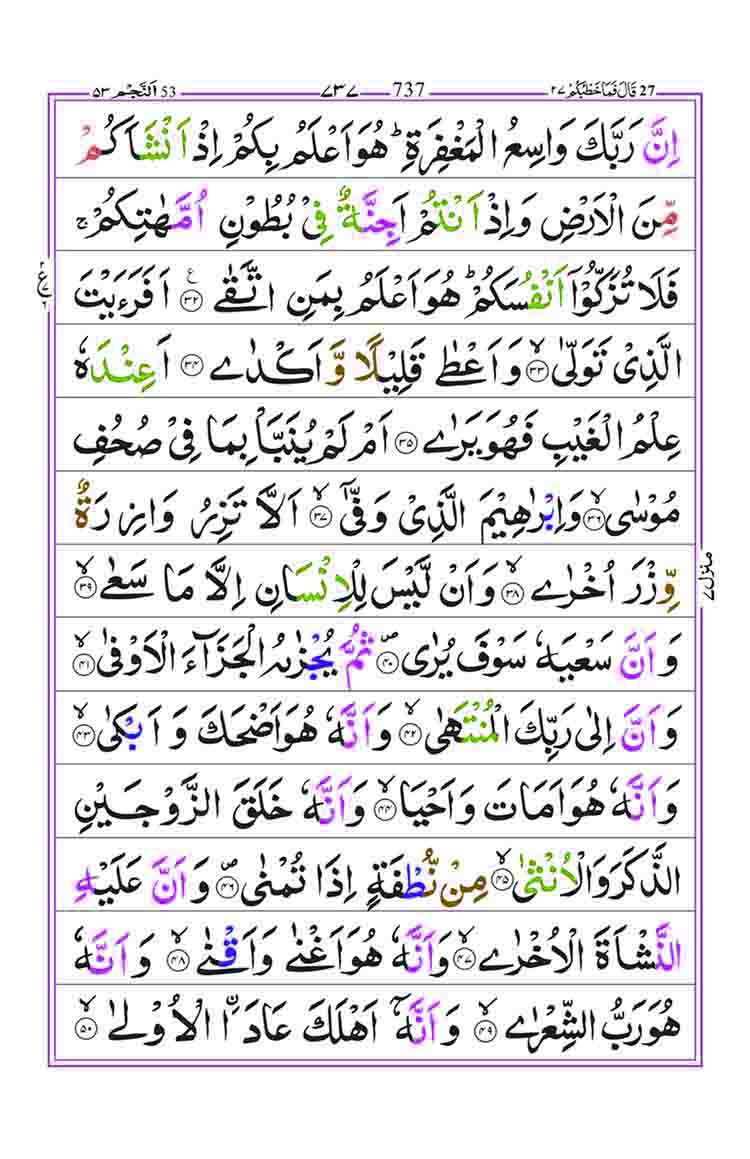 27 قَالَ فَمَا خَطْبُكُمْ ٢٧ 737 ٧٣٧ 53 اَلنَّجْم ٥٣
اِنَّ رَبَّكَ وَاسِعُ الْمَغْفِرَةِ ؕ هُوَ اَعْلَمُ بِكُمْ اِذْ اَنْشَاَكُمْ
مِّنَ الْاَرْضِ وَاِذْ اَنْتُمْ اَجِنَّةٌ فِیْ بُطُوْنِ اُمَّهٰتِكُمْ ۚ
فَلَا تُزَكُّوْۤا اَنْفُسَكُمْ ؕ هُوَ اَعْلَمُ بِمَنِ اتَّقٰے ۝٣٢ ع اَفَرَءَيْتَ
الَّذِیْ تَوَلّٰى ۝٣٣ ۙ وَاَعْطٰے قَلِيْلًا وَّ اَكْدٰے ۝٣٤ اَعِنْدَهٗ
عِلْمُ الْغَيْبِ فَهُوَ يَرٰے ۝٣٥ اَمْ لَمْ يُنَبَّاْ بِمَا فِیْ صُحُفِ
مُوْسٰى ۝٣٦ ۙ وَاِبْرٰهِيْمَ الَّذِیْ وَفّٰىۤ ۝٣٧ ۙ اَلَّا تَزِرُ وَازِرَةٌ
وِّزْرَ اُخْرٰے ۝٣٨ ۙ وَاَنْ لَّيْسَ لِلْاِنْسَانِ اِلَّا مَا سَعٰے ۝٣٩ ۙ
وَاَنَّ سَعْيَهٗ سَوْفَ يُرٰى ۝٤٠ ۪ ثُمَّ يُجْزٰىهُ الْجَزَآءَ الْاَوْفٰى ۝٤١ ۙ
وَاَنَّ اِلٰى رَبِّكَ الْمُنْتَهٰى ۝٤٢ ۙ وَاَنَّهٗ هُوَ اَضْحَكَ وَ اَبْكٰى ۝٤٣ ۙ
وَاَنَّهٗ هُوَ اَمَاتَ وَاَحْيَا ۝٤٤ ۙ وَاَنَّهٗ خَلَقَ الزَّوْجَيْنِ
الذَّكَرَ وَالْاُنْثٰى ۝٤٥ ۙ مِنْ نُّطْفَةٍ اِذَا تُمْنٰى ۝٤٦ ۪ وَاَنَّ عَلَيْهِ
النَّشْاَةَ الْاُخْرٰے ۝٤٧ ۙ وَاَنَّهٗ هُوَ اَغْنٰے وَاَقْنٰے ۝٤٨ ۙ وَاَنَّهٗ
هُوَ رَبُّ الشِّعْرٰے ۝٤٩ ۙ وَاَنَّهٗۤ اَهْلَكَ عَادَاۨ الْاُوْلٰے ۝٥٠ ۙ
منزل ٧